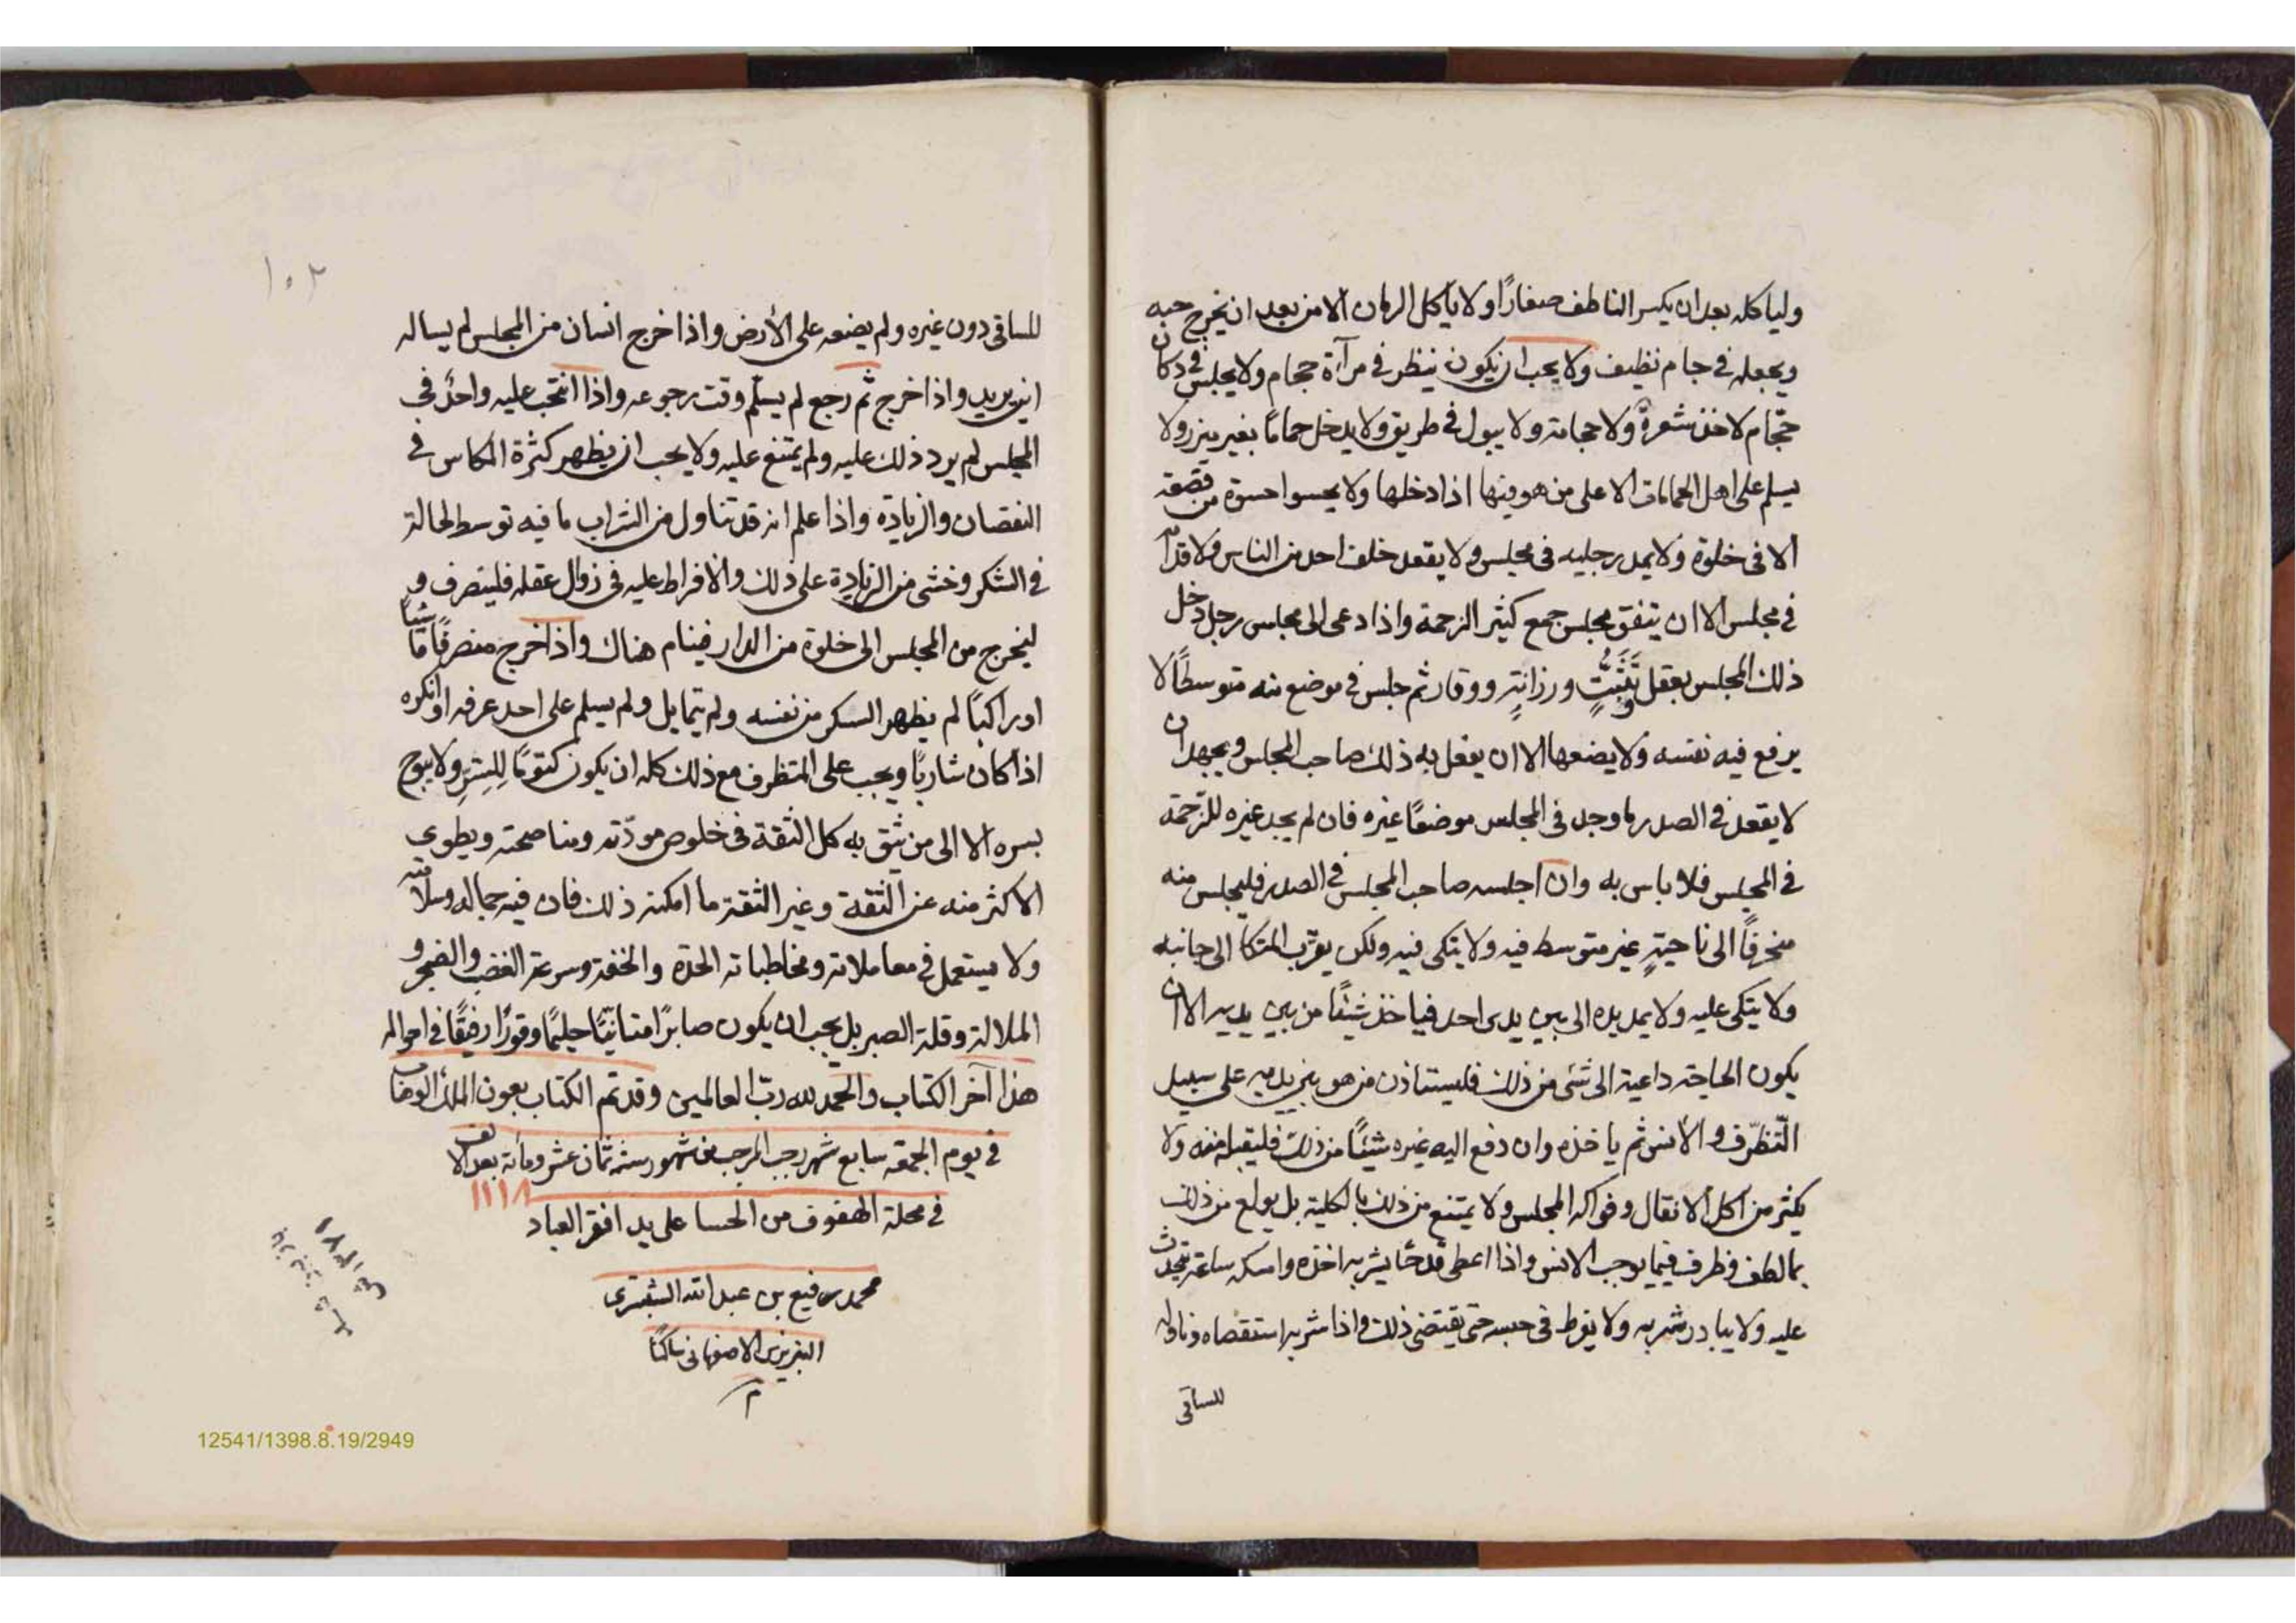 ولياكله بعد ان يكسر الناطف صغارًا ولا ياكل الرمان الا من بعد ان يخرج حبه
ويجعله في جام نظيف ولا يجب ان يكون ينظر في مرآة حجام ولا يجلس في دكان
حجّام لاخذ شعرة ولا حجامة ولا يبول في طريق ولا يدخل حمامًا بغير ميزر ولا
يسلم على اهل الحمامات الا على من هو فيها اذا دخلها ولا يحسوا حسوة من قصعة
الا فى خلوة ولا يمد رجليه فى مجلس ولا يقعد خلف احد من الناس ولا قدامه
في مجلس الا ان يتفق مجلس جمع كثير الزحمة واذا دعى الى مجلس رجل دخل
ذلك المجلس بعقل وتثبّتٍ ورزانةٍ ووقار ثم جلس في موضع منه متوسطًا لا
يرفع فيه نفسه ولا يضعها الا ان يفعل به ذلك صاحب المجلس ويجهد ان
لا يقعد في الصدر ما وجد فى المجلس موضعًا غيره فان لم يجد غيره للزحمة
في المجلس فلا باس به وان اجلسه صاحب المجلس في الصدر فليجلس منه
منحرفًا الى ناحيةٍ غير متوسط فيه ولا يتكى فيه ولكن يقرّب المتكأ الى جانبه
ولا يتكى عليه ولا يمد يده الى بين يدى احد فياخذ شيئًا من بين يديه الا ان
يكون الحاجة داعية الى شئ من ذلك فليستاذن من هو بين يديه على سبيل
التّظرّف والأنس ثم ياخذه وان دفع اليه غيره شيئًا من ذلك فليقبله منه ولا
يكثر من اكل الانقال وفواكه المجلس ولا يمتنع من ذلك بالكلية بل يولع من ذلك
بما لطف وظرف فيما يوجب الانس واذا اعطى قدحًا يشربه اخذه وامسكه ساعة يتحدث
عليه ولا يبادر شربه ولا يفرط فى حبسه حتى يقتضى ذلك واذا شربه استقصاه وناوله
للساقى
١٠٢
للساقى دون غيره ولم يضعه على الأرض واذا خرج انسان من المجلس لم يساله
اين يريد واذا خرج ثم رجع لم يسلّم وقت رجوعه واذا انتخب عليه واحدٌ في
المجلس لم يرد ذلك عليه ولم يمتنع عليه ولا يجب ان يظهر كثرة المكاس في
النقصان والزيادة واذا علم انه قد تناول من الشراب ما فيه توسط لحالة
في السّكر وخشى من الزيادة على ذلك والافراط عليه فى زوال عقله فلينصرف و
ليخرج من المجلس الى خلوة من الدار فينام هناك واذا خرج منصرفًا ماشيًا
او راكبًا لم يظهر السكر من نفسه ولم يتمايل ولم يسلم على احد عرفه او انكره
اذا كان شاربًا ويجب على المتظرف مع ذلك كله ان يكون كتومًا لِلسِّرِّ ولا يبوح
بسره الا الى من يثق به كل الثقة فى خلوص مودّته ومناصحته ويطوى
الاكثر منه عن الثقة وغير الثقة ما امكنه ذلك فان فيه جماله وسلامته
ولا يستعمل في معاملاته ومخاطباته الحدة والخفة وسرعة الغضب والضجر و
الملالة وقلة الصبر بل يجب ان يكون صابرًا متانيًّا حليمًا وقورًا رفيقًا في احواله
هذا آخر الكتاب والحمد لله ربّ العالمين وقد تم الكتاب بعون الملك الوهاب
في يوم الجمعه سابع شهر رجب المرجب من شهور سنة ثمان عشر ومأئة بعد الالف
١١١٨
في محلة الهفوف من الحسا على يد افقر العباد
محمد رفيع بن عبد الله الشبسترى
التبريزى الاصفهانى ساكنًا
م
12541/1398.8.19/2949